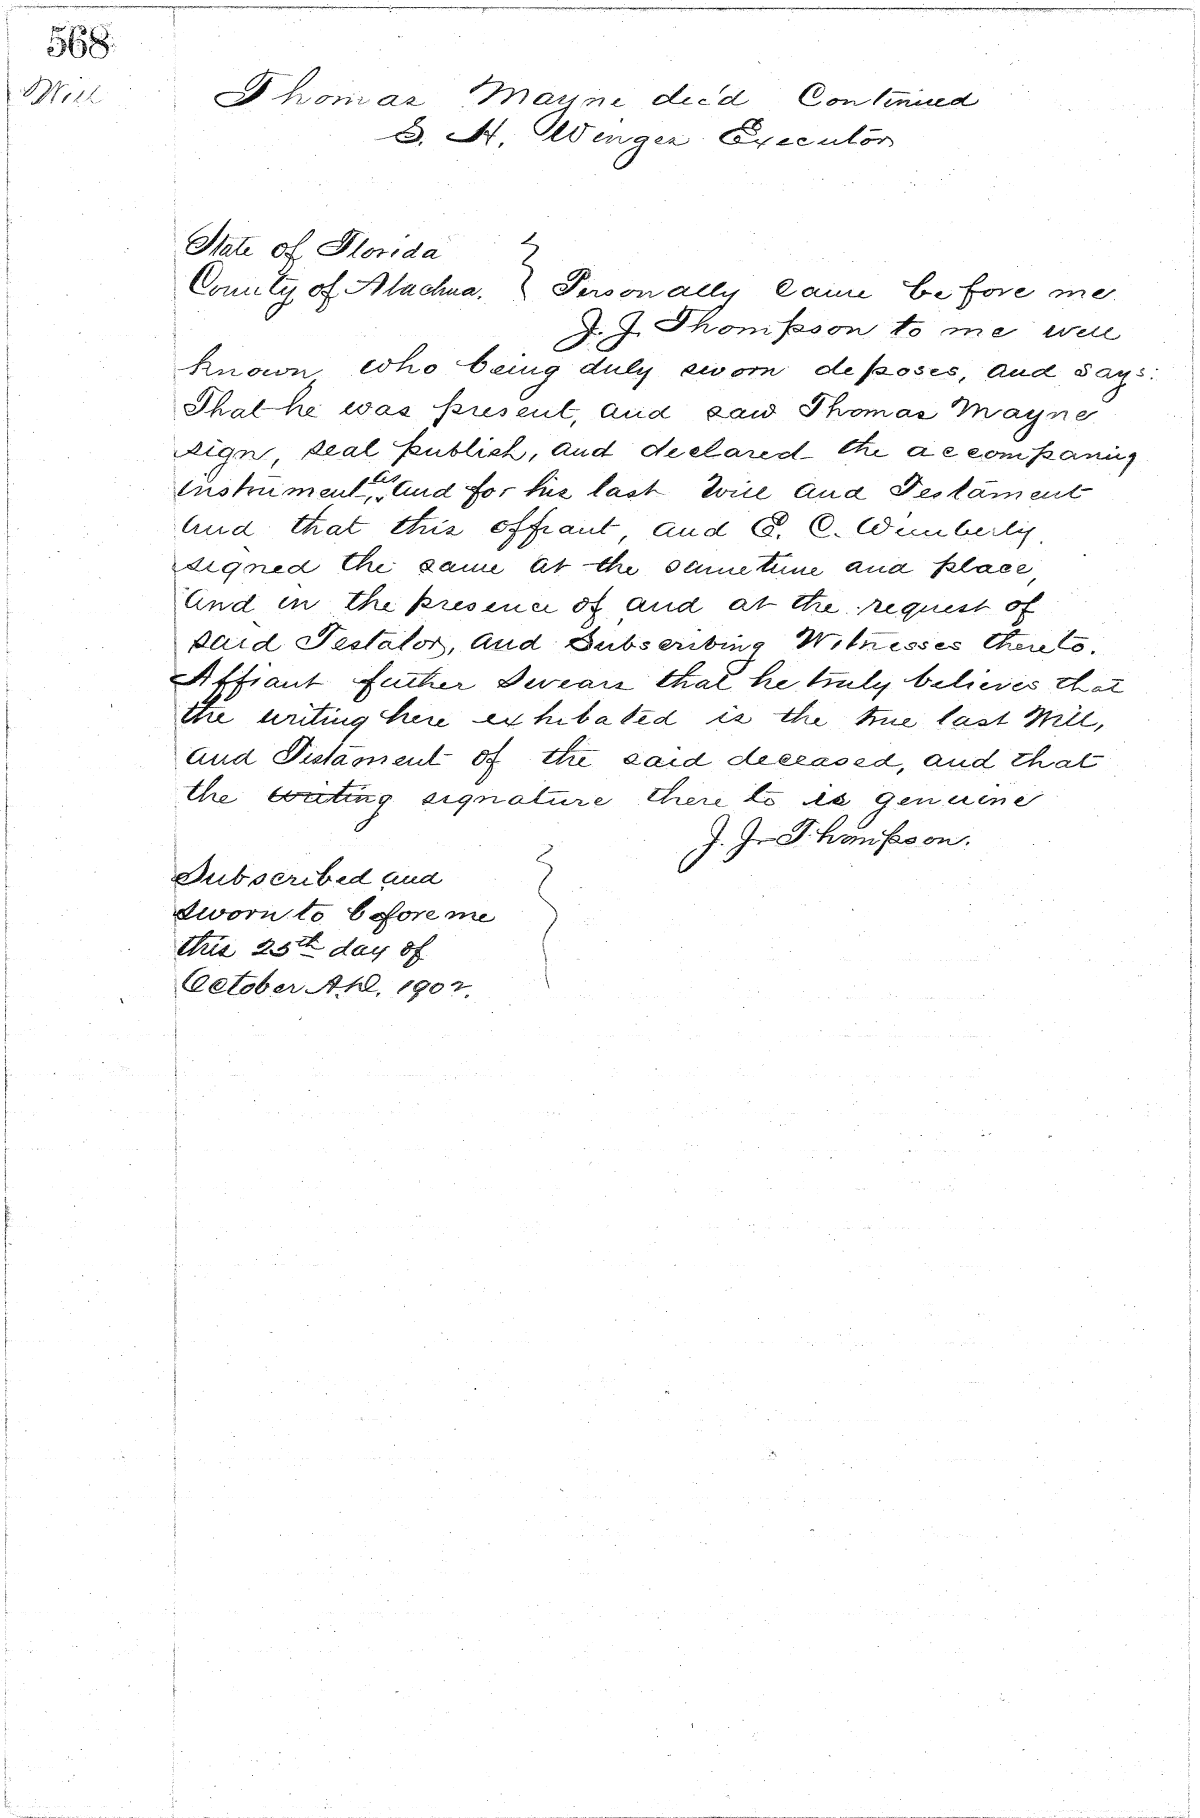 568
Will
Thomas Mayne dec'd Continued
S. H. Winges Executor
State of Florida
County of Alachua. } Personally came before me
J. J. Thompson to me well
known, who being duly sworn deposes, and says:
That he was present, and saw Thomas Mayne
sign, seal publish, and declared the accompaning
instrument, as, and for his last Will and Testament
and that this affiant, and E. C. Wimberly.
signed the same at the sametime and place,
and in the presence of and at the request of
said Testator, and Subscribing Witnesses thereto.
Affiant futher Swears that he truly believes that
the writing here exhibated is the true last Will,
and Testament of the said deceased, and that
the writing signature there to is genuine
J. J. Thompson.
Subscribed and
sworn to before me
this 25th day of
October A.D. 1902.